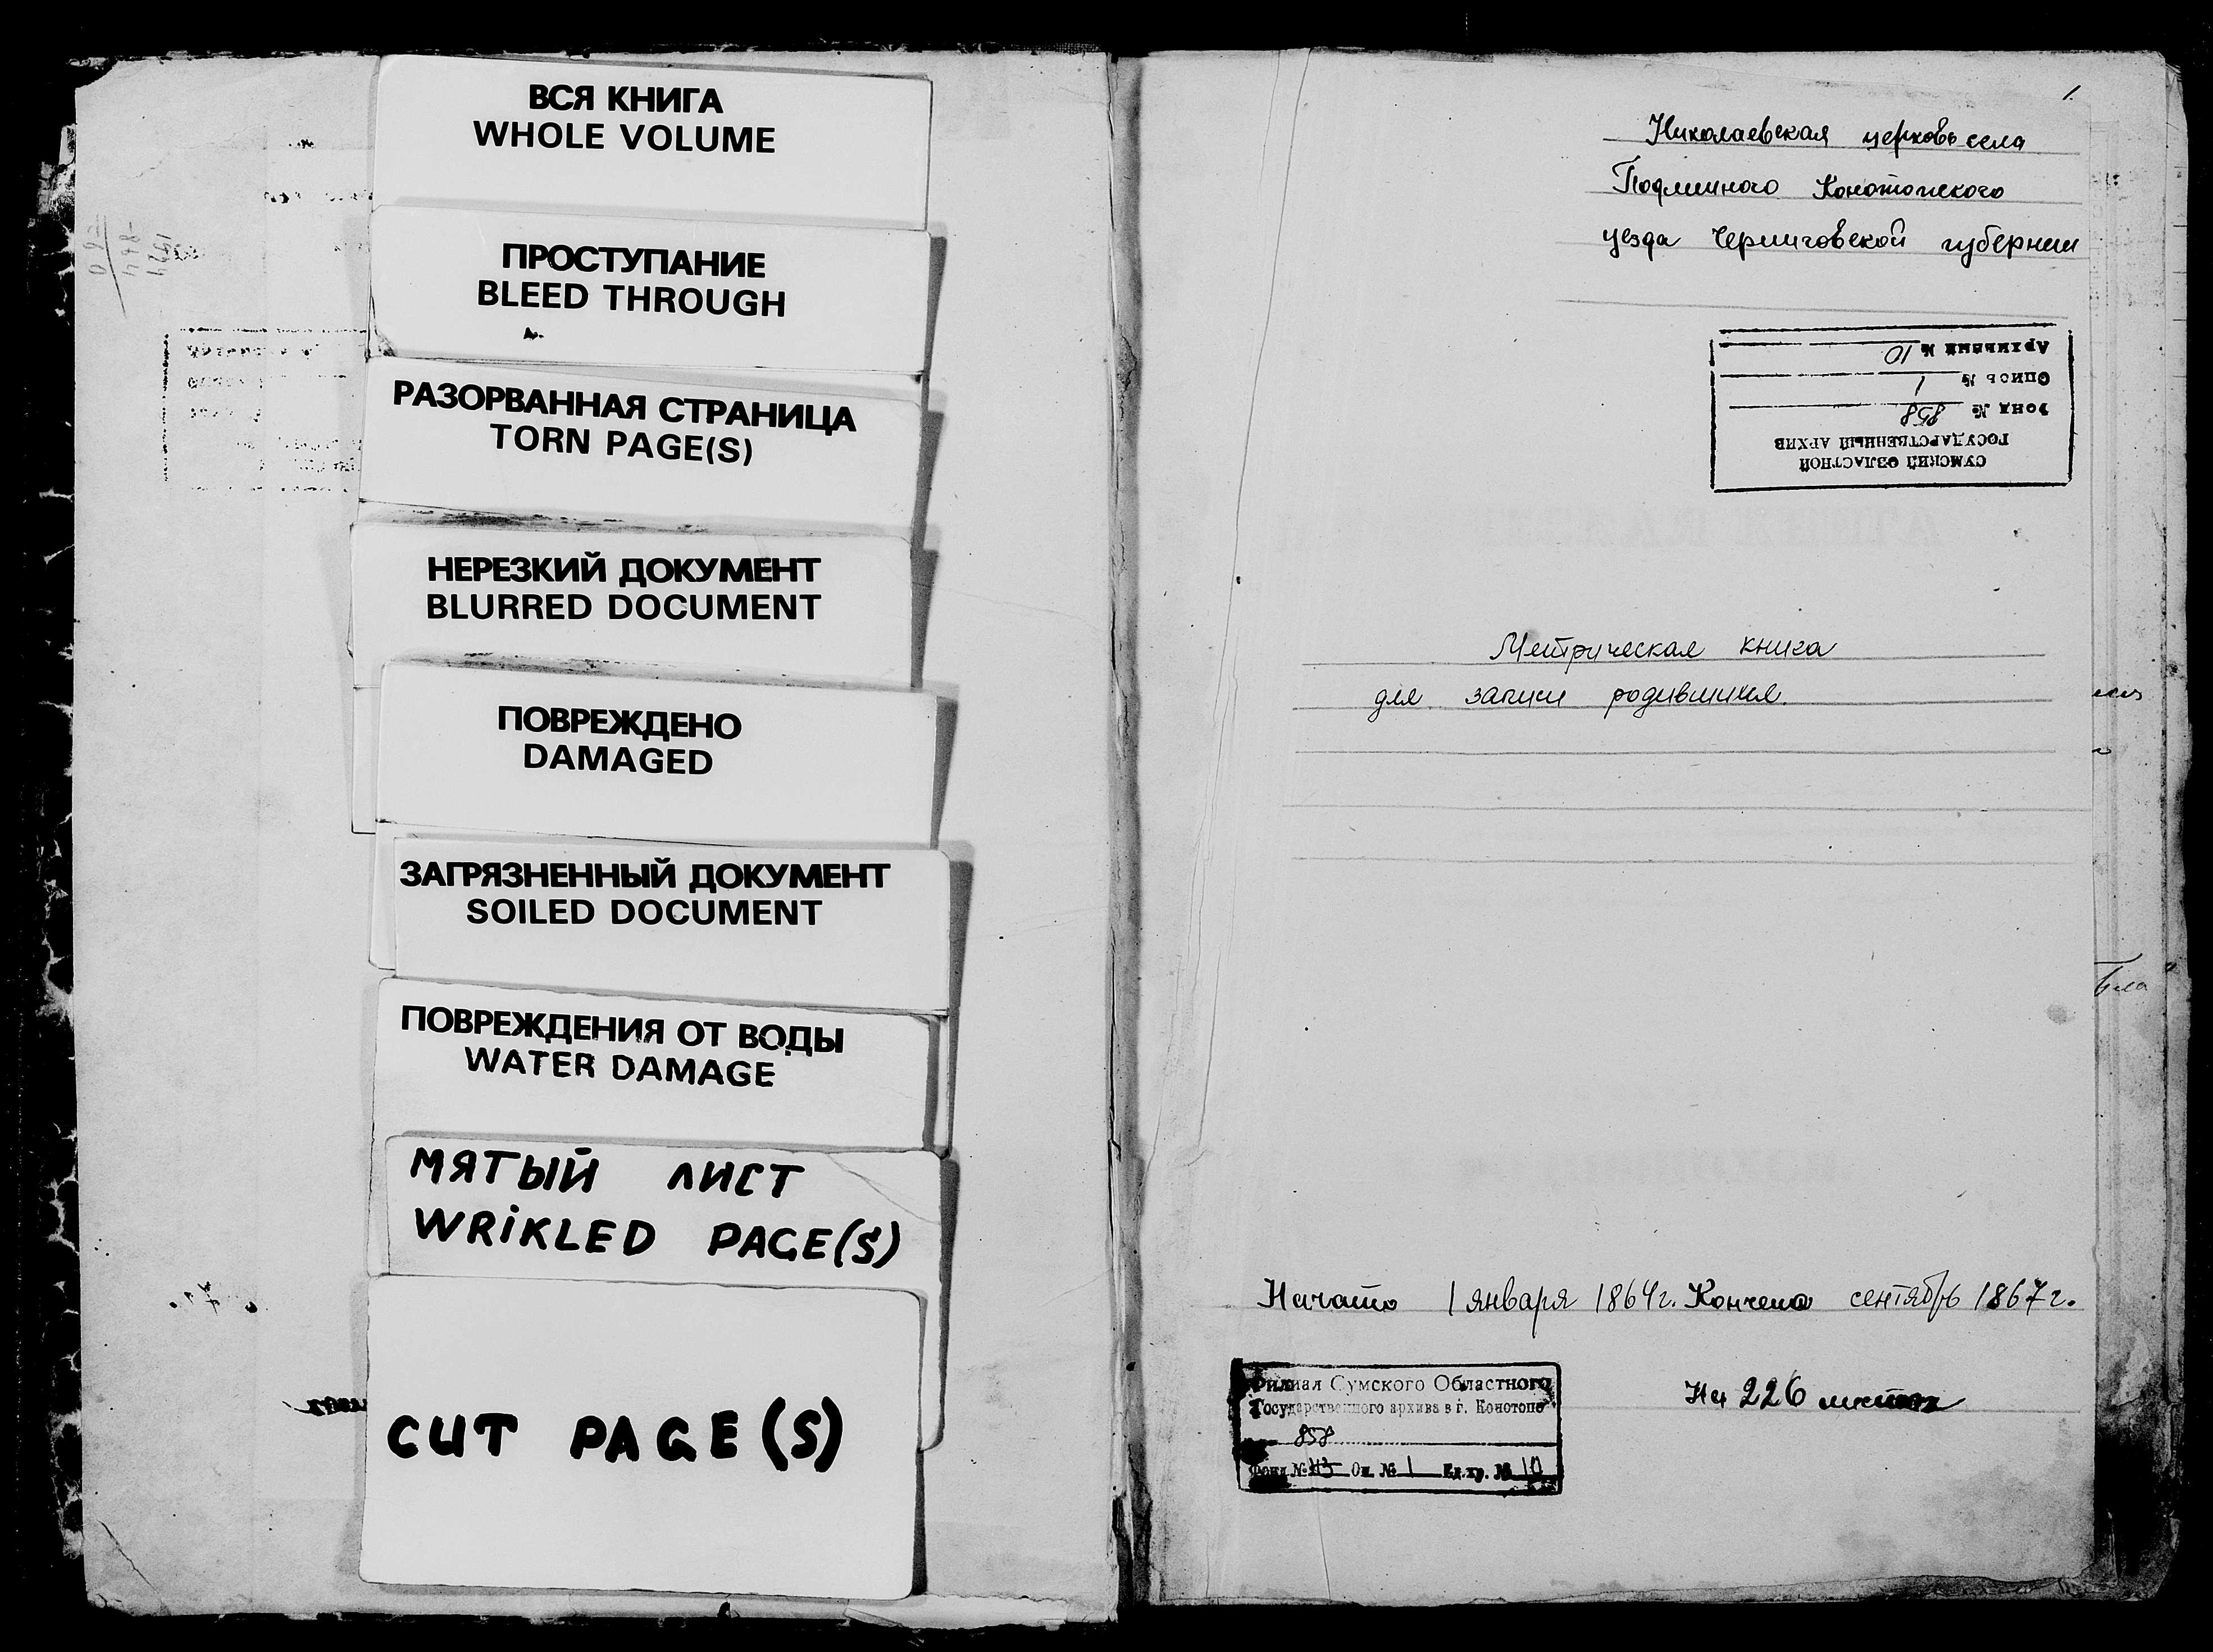 ВСЯ КНИГА
WHOLE VOLUME
ПРОСТУПАНИЕ
BLEED THROUGH
РАЗОРВАННАЯ СТРАНИЦА
TORN PAGE(S)
НЕРЕЗКИЙ ДОКУМЕНТ
BLURRED DOCUMENT
ПОВРЕЖДЕНО
DAMAGED
ЗАГРЯЗНЕННЫЙ ДОКУМЕНТ
SOILED DOCUMENT
ПОВРЕЖДЕНИЯ ОТ ВОДЫ
WATER DAMAGE
МЯТЫЙ ЛИСТ
WRiKLED PAGE(S)
CUT PAGE(S)
1.
Николаевская церковь села
Подлипного Конотопского
уезда Черниговской губернии
СУМСКИЙ ОБЛАСТНОЙ
ГОСУДАРСТВЕННЫЙ АРХИВ
Фонд № 858
Опись № 1
Архивный № 10
Метрическая книга
для записи родившихся.
Начато 1 января 1864г. Кончено сентябрь 1867г.
На 226 листах
Филиал Сумского Областного
Государственного архива в г. Конотопе
858
Фонд № 43 Оп. № 1 Ед.хр. № 10